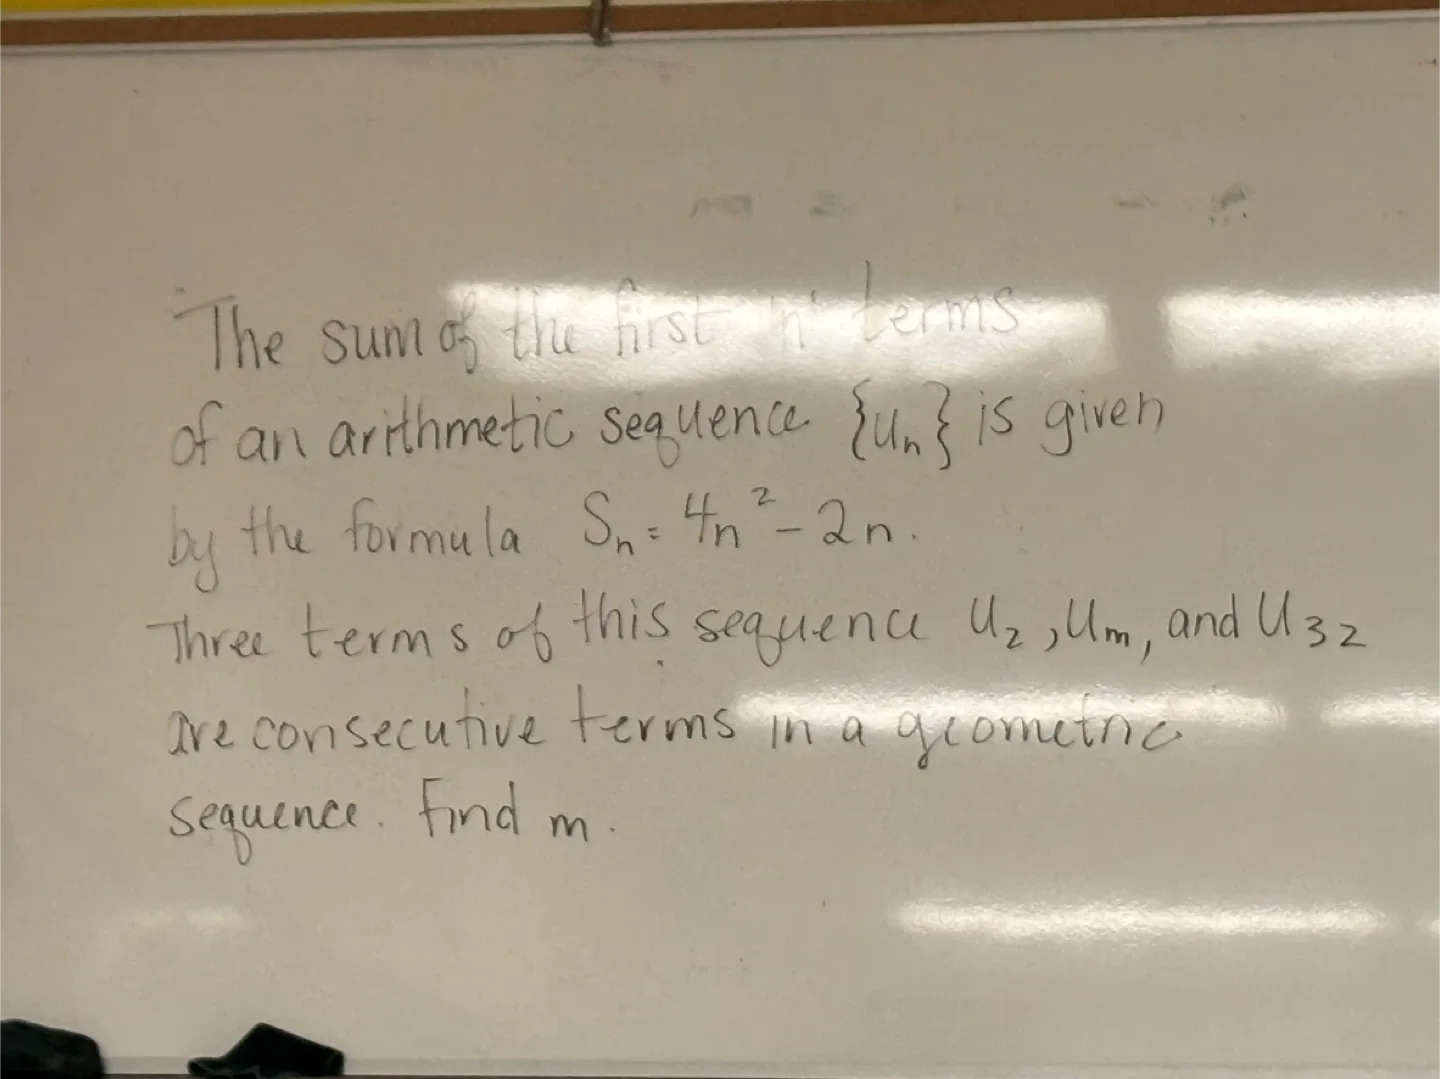 The sum of the first 'n' terms
of an arithmetic sequence {uₙ} is given
by the formula Sₙ = 4n² - 2n.
Three terms of this sequence U₂, Uₘ, and U₃₂
are consecutive terms in a geometric
sequence. Find m.